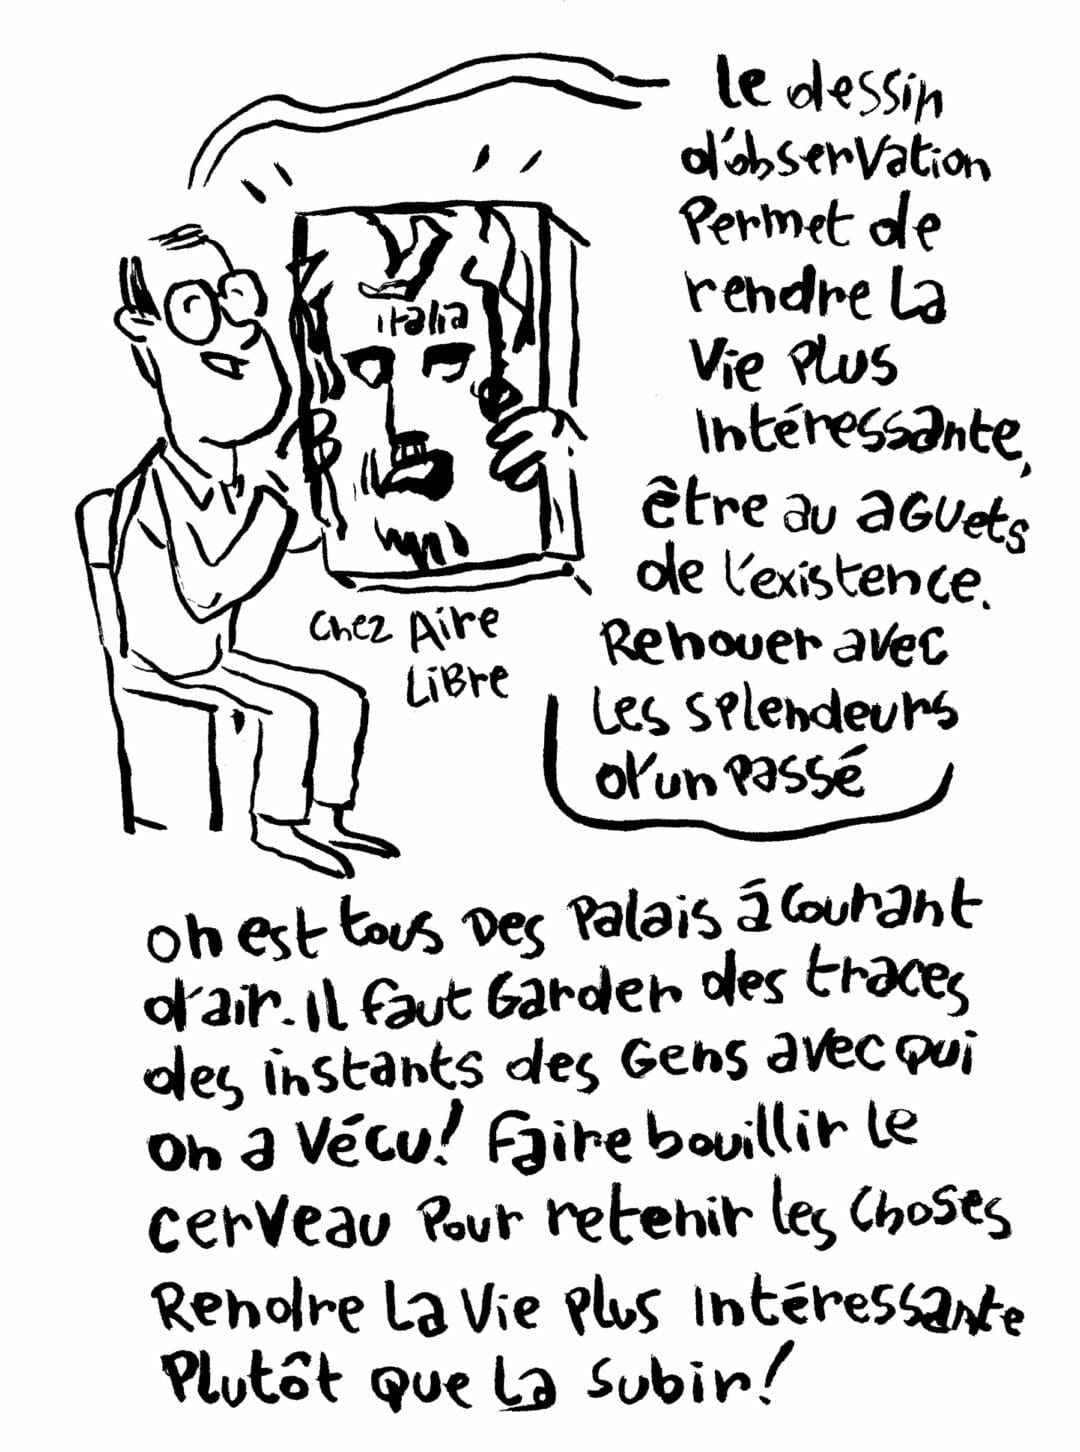 le dessin
d'observation
Permet de
rendre la
Vie Plus
Intéressante,
être au aguets
de l'existence.
Renouer avec
Les splendeurs
d'un Passé
italia
Chez Aire
Libre
on est tous Des Palais à Courant
d'air. Il faut Garder des traces
des instants des Gens avec qui
on a vécu! Faire bouillir le
cerveau Pour retenir les choses
Rendre La Vie Plus Intéressante
Plutôt que La Subir!